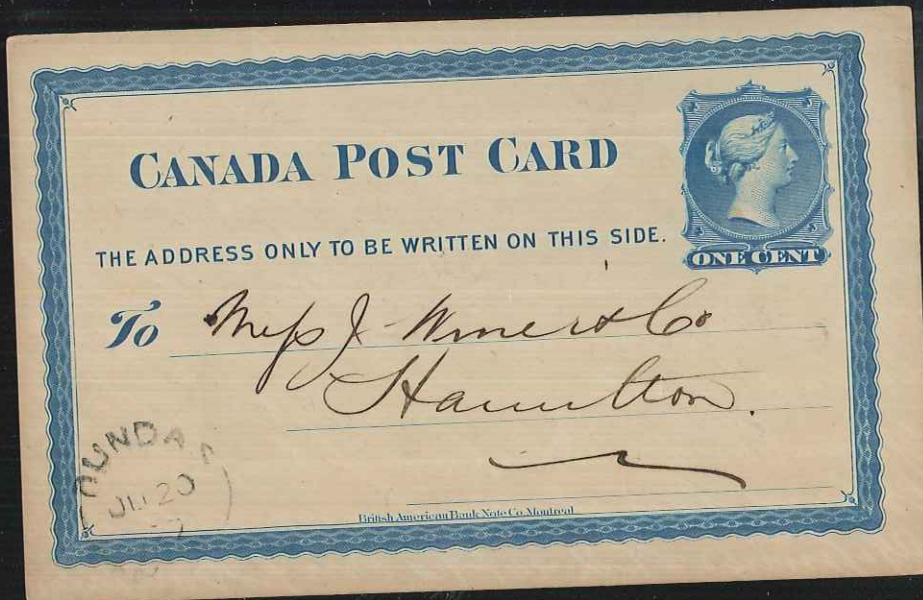 CANADA POST CARD
THE ADDRESS ONLY TO BE WRITTEN ON THIS SIDE.
ONE CENT
To Mess J. Winer & Co
Hamilton.
DUNDAS
20
British American Bank Note Co. Montreal